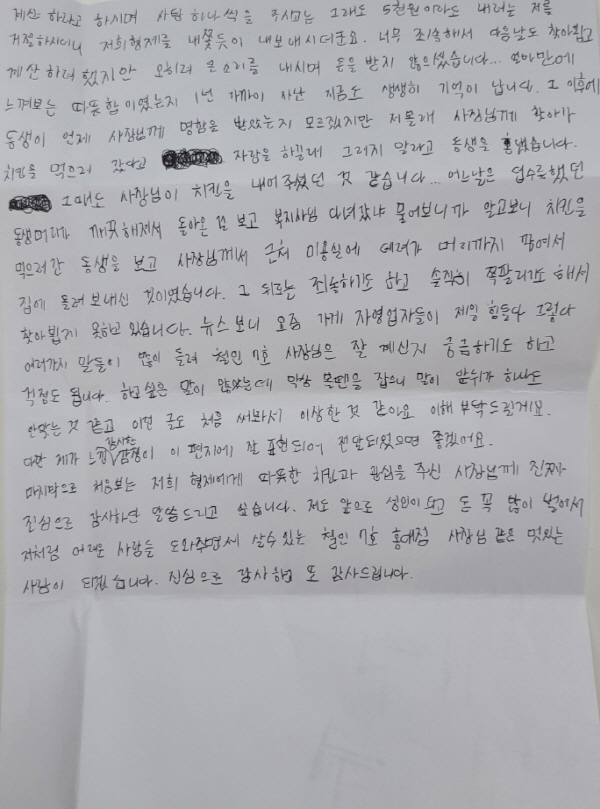 계산하라고 하시며 사탕 하나씩을 주시고는 그래도 5천원이라도 내려는 저를
거절하시더니 저희형제를 내쫓듯이 내보내시더군요. 너무 죄송해서 다음날도 찾아뵙고
계산하려 했지만 오히려 큰소리를 내시며 돈을 받지 않으셨습니다... 얼마만에
느껴보는 따뜻함이였는지 1년 가까이 지난 지금도 생생히 기억이 납니다. 그 이후에
동생이 언제 사장님께 명함을 받았는지 모르겠지만 저몰래 사장님께 찾아가
치킨을 먹으러 갔다고 자랑을 하길래 그러지 말라고 동생을 혼냈습니다.
그때도 사장님이 치킨을 내어주셨던 것 같습니다... 어느날은 덥수룩했던
동생머리가 깨끗해져서 돌아온 걸 보고 복지사님 다녀갔냐 물어보니까 알고보니 치킨을
먹으러간 동생을 보고 사장님께서 근처 미용실에 데려가 머리까지 깎여서
집에 돌려보내신 것이였습니다. 그 뒤로는 죄송하기도 하고 솔직히 쪽팔리기도 해서
찾아뵙지 못하고 있습니다. 뉴스보니 요즘 가게 자영업자들이 제일 힘들다 그렇다
여러가지 말들이 많이 들려 철인 7호 사장님은 잘 계신지 궁금하기도 하고
걱정도 됩니다. 하고싶은 말이 많았는데 막상 볼펜을 잡으니 말이 앞뒤가 하나도
안맞는 것 같고 이런 글도 처음 써봐서 이상한 것 같아요 이해 부탁드릴게요.
다만 제가 느낀 감사한 감정이 이 편지에 잘 표현되어 전달되었으면 좋겠어요.
마지막으로 처음보는 저희 형제에게 따뜻한 치킨과 관심을 주신 사장님께 진짜
진심으로 감사하단 말씀드리고 싶습니다. 저도 앞으로 성인이 되고 돈 꼭 많이 벌어서
저처럼 어려운 사람들 도와주면서 살수 있는 철인 7호 홍대점 사장님 같은 멋있는
사람이 되겠습니다. 진심으로 감사하고 또 감사드립니다.